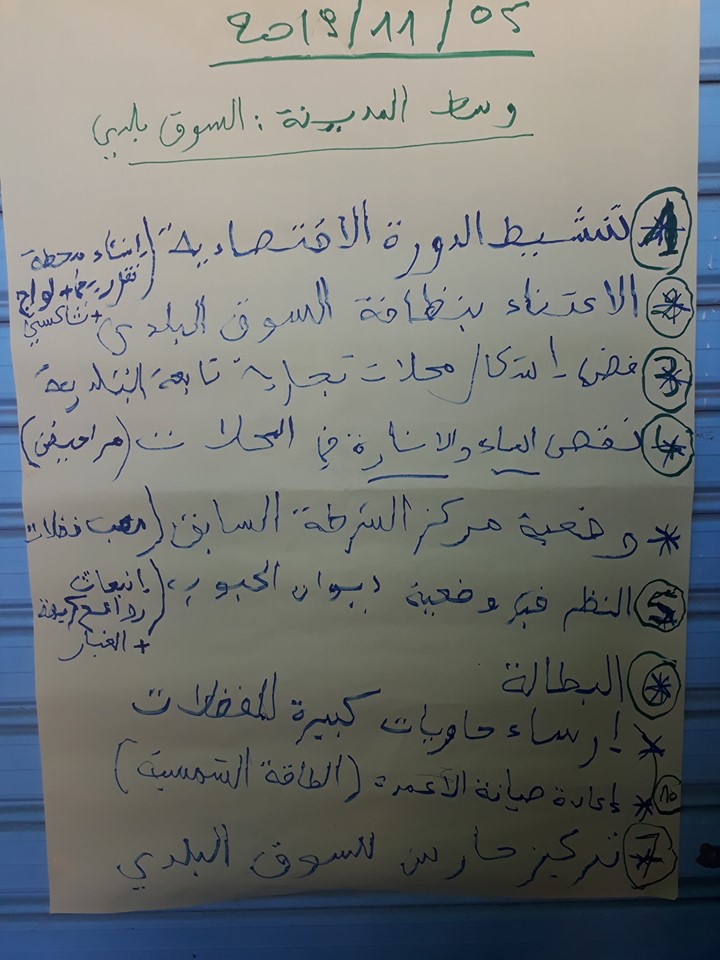 2019/11/05
وسط المدينة : السوق بلدي
1 * تنشيط الدورة الاقتصادية (إنشاء محطة
نقل ريفي + لواج
+ تاكسي
* الاعتناء بنظافة السوق البلدي
3 * فض إشكال محلات تجارية تابعة البلدية
4 * نقص الماء والانارة في المحلات (مراحيض)
* وضعية مركز الشرطة السابق (مصب فضلات
5 * النظر في وضعية ديوان الحبوب (إنبعاث
روائح كريهة
+ الغبار
* البطالة
* إرساء حاويات كبيرة للفضلات
10 * إعادة صيانة الأعمدة (الطاقة الشمسية)
7 * تركيز حارس للسوق البلدي